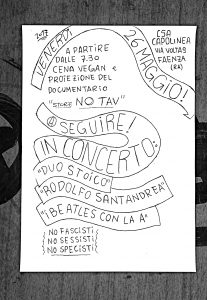 2017
VENERDI
26 MAGGIO!
CSA
CAPOLINEA
VIA VOLTA 9
FAENZA
(RA)
A PARTIRE
DALLE 7.30
CENA VEGAN e
PROIEZIONE DEL
DOCUMENTARIO
"STORIE NO TAV"
A SEGUIRE!
IN CONCERTO:
"DUO STOICO"
"RODOLFO SANTANDREA"
"i BEATLES CON LA A"
NO FASCISTI
NO SESSISTI
NO SPECISTI